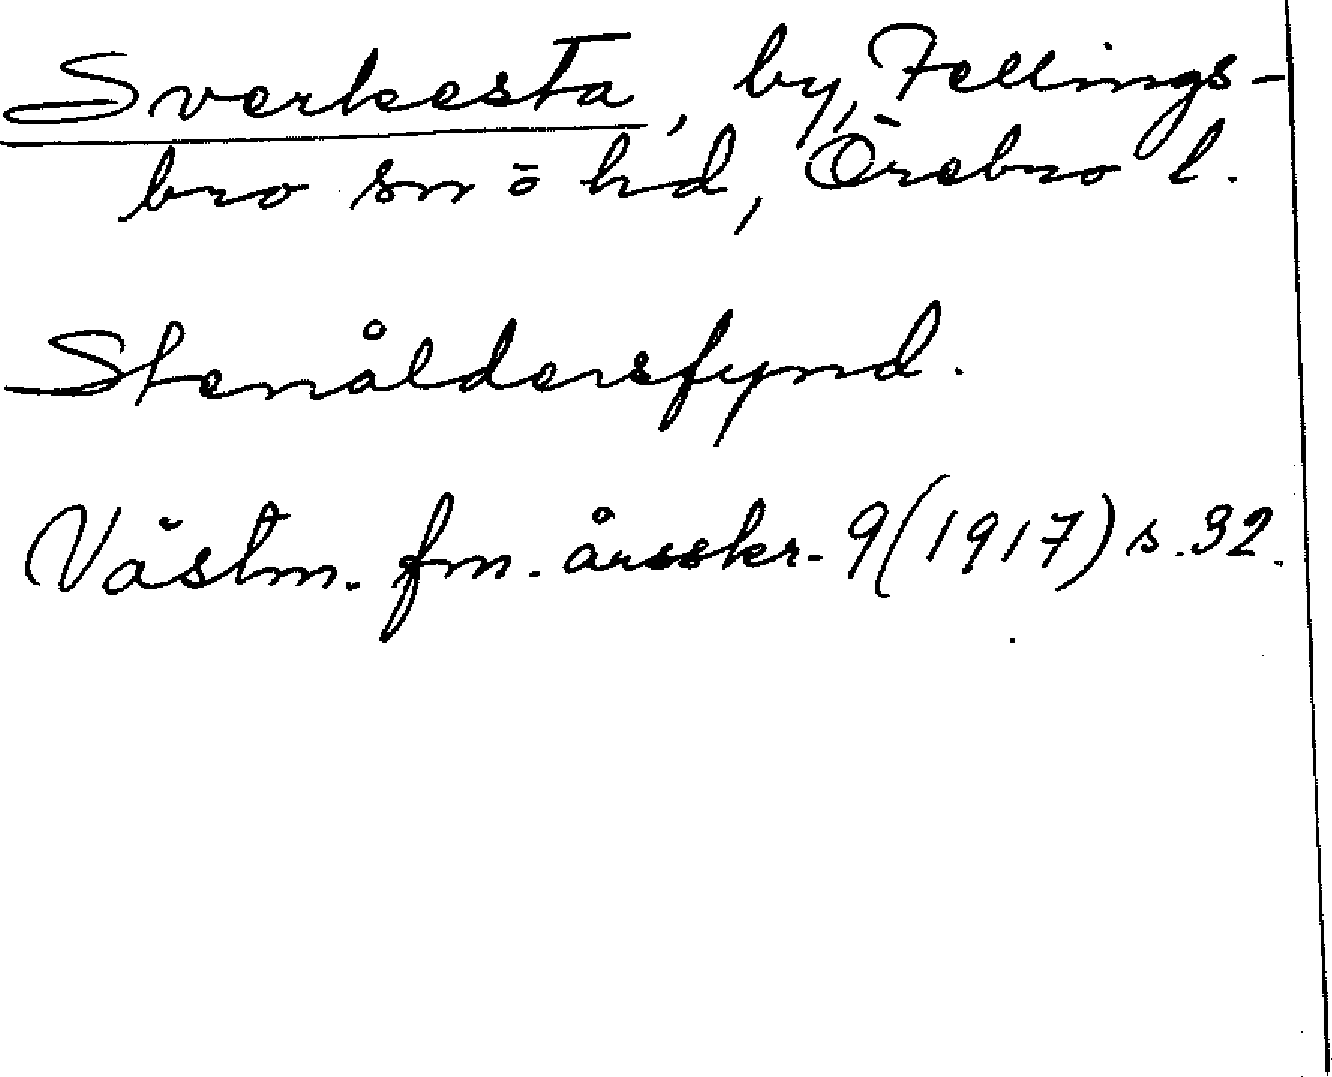 Sverkesta, by, Fellings-
bro sn ö hd, Örebro l.
Stenåldersfynd.
Västm. fm. årsskr. 9(1917) s. 32.